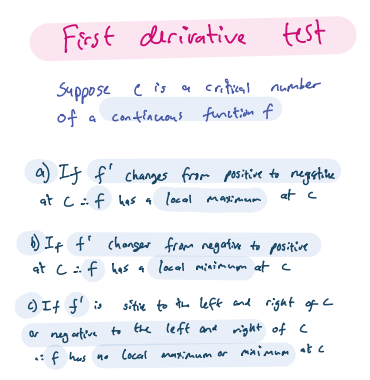 First derivative test
Suppose c is a critical number
of a continuous function f
a) If f' changes from positive to negative
at C ∴ f has a local maximum at c
b) If f' changes from negative to positive
at C ∴ f has a local minimum at c
c) If f' is sitie to the left and right of c
or negative to the left and right of c
∴ f has no local maximum or minimum at c